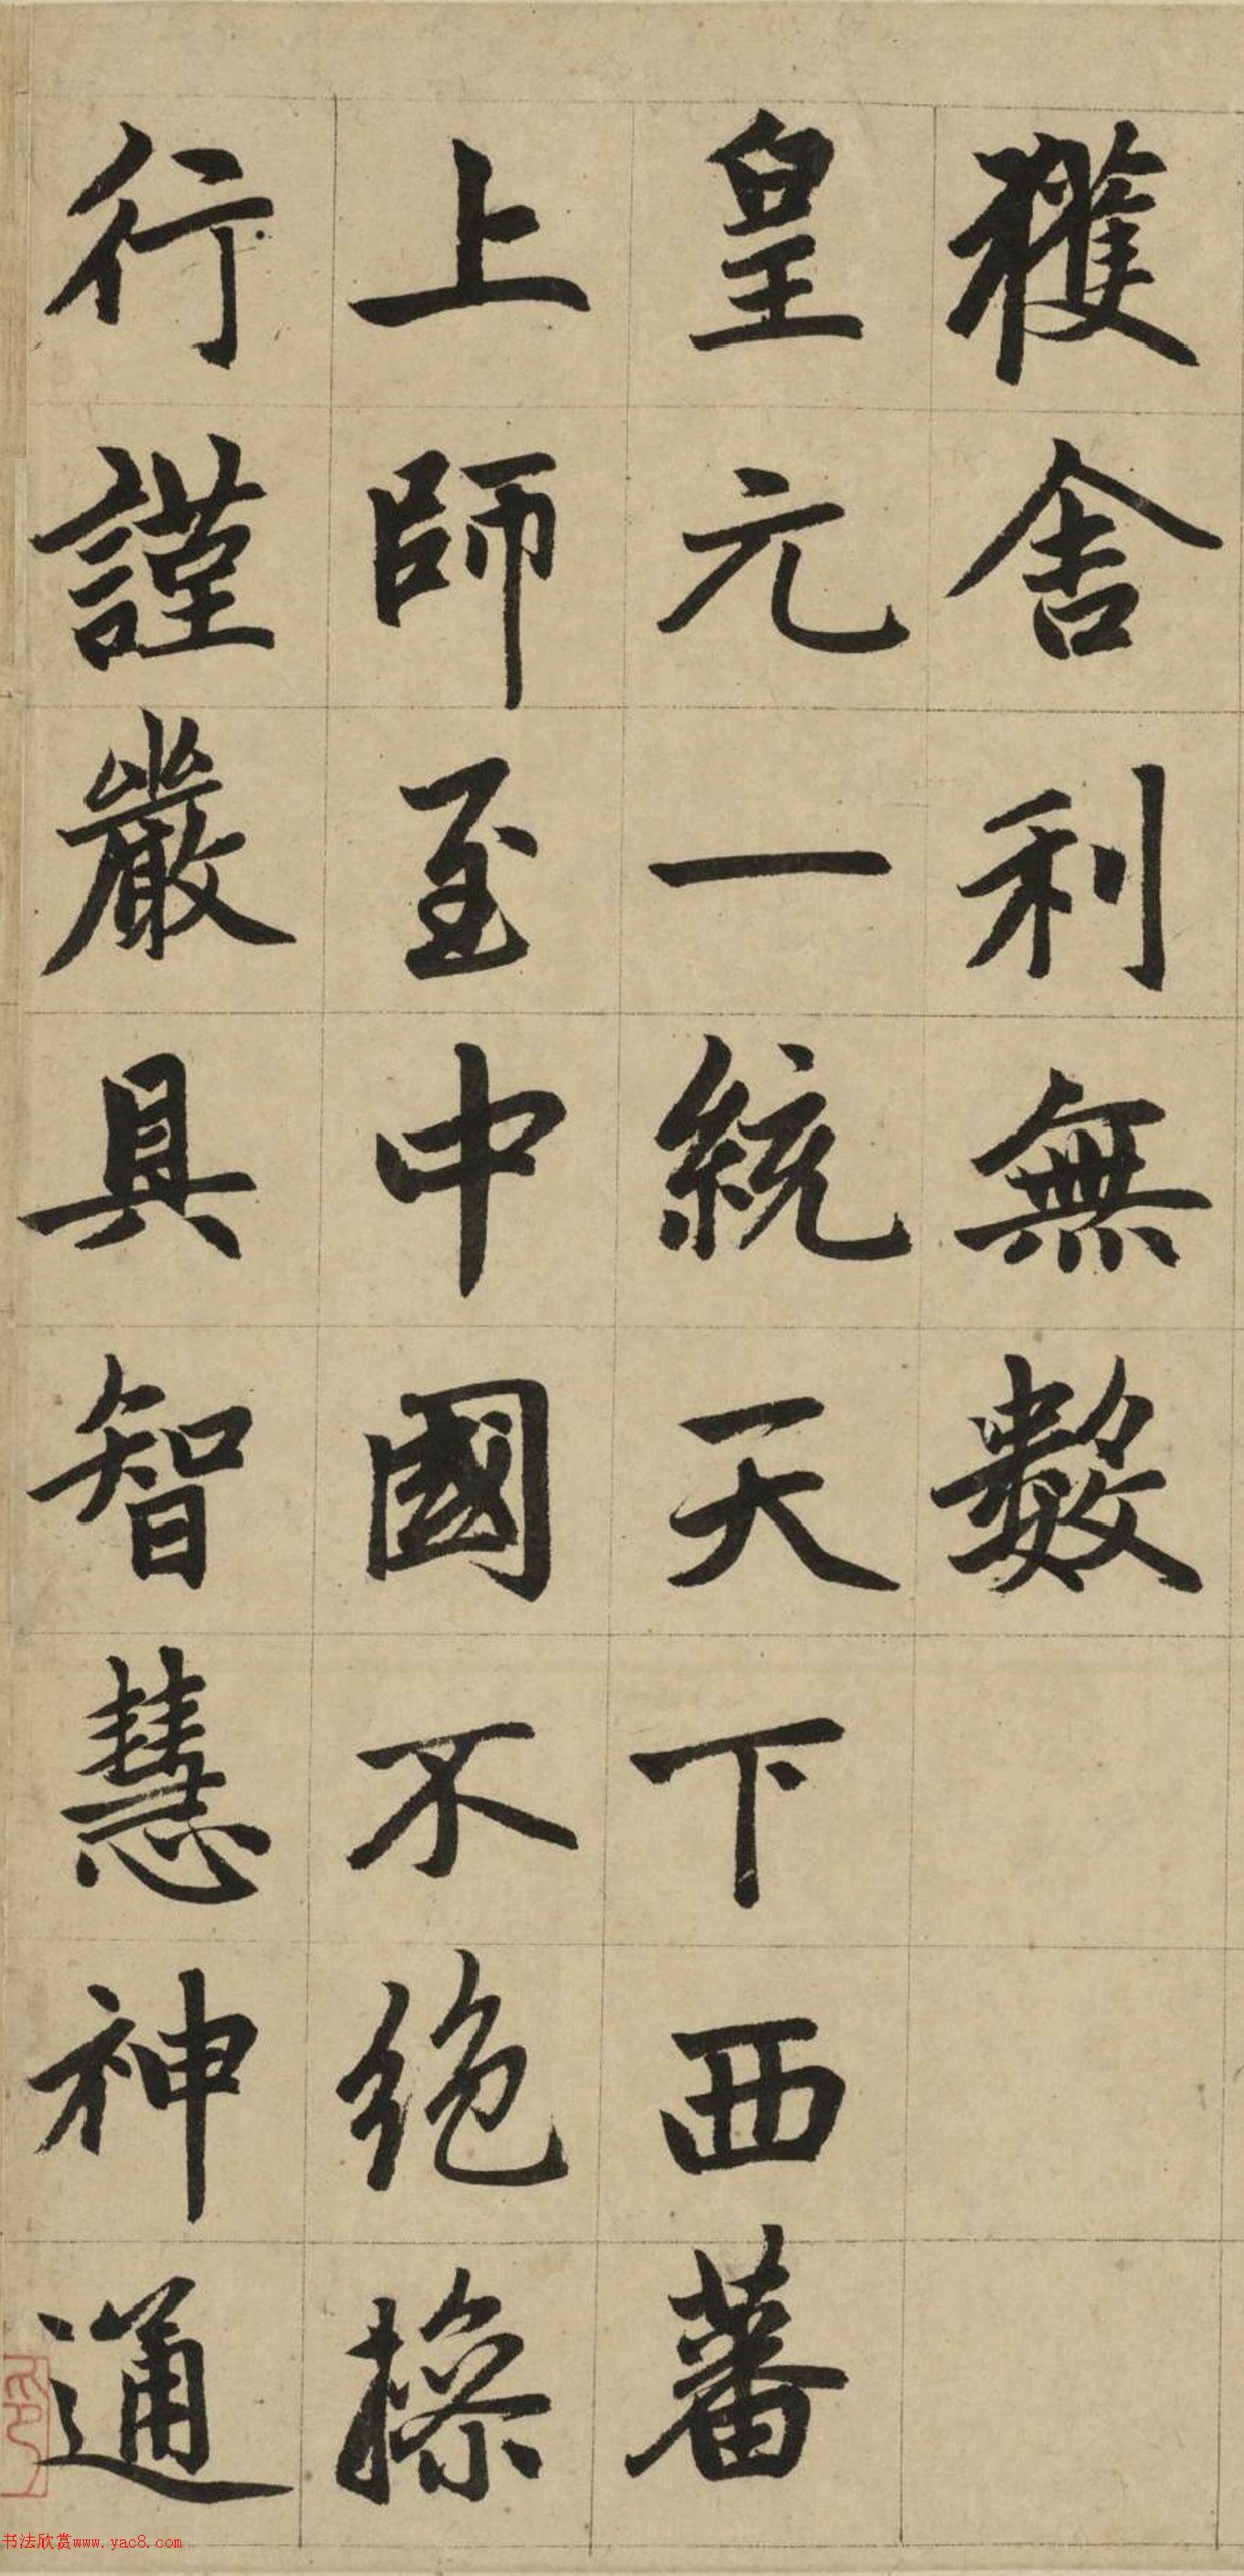 獲舍利無數
皇元一統天下西蕃
上師至中國不絕操
行謹嚴具智慧神通
书法欣赏www.yac8.com